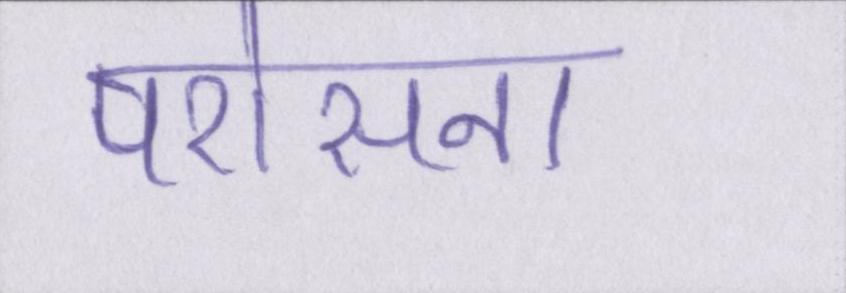 परोसना